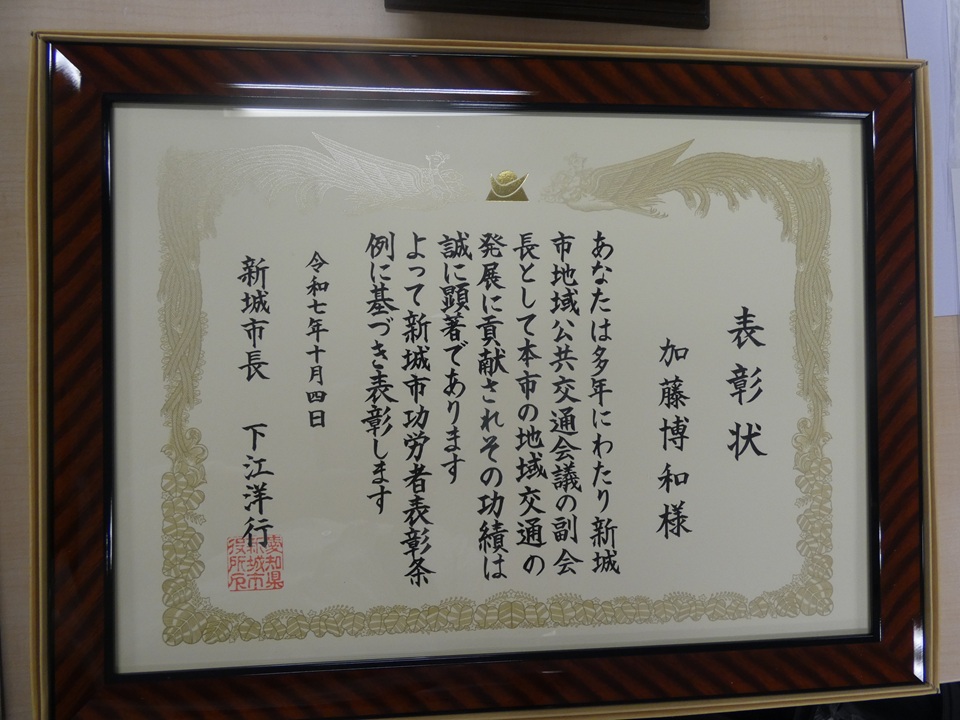 表彰状
加藤博和様
あなたは多年にわたり新城
市地域公共交通会議の副会
長として本市の地域交通の
発展に貢献されその功績は
誠に顕著であります
よって新城市功労者表彰条
例に基づき表彰します
令和七年十月四日
新城市長 下江洋行
愛知県
新城市
役所印